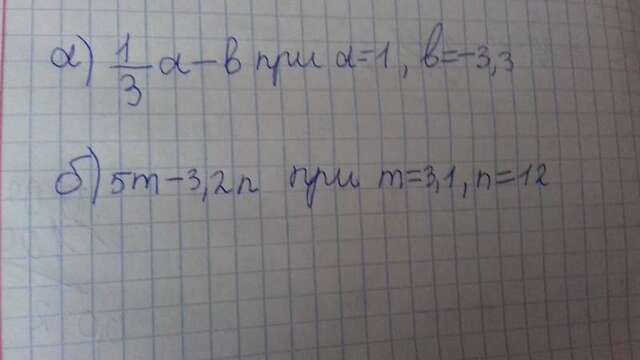 а) 1/3 a - b при a=1, b=-3,3
б) 5m - 3,2n при m=3,1, n=12